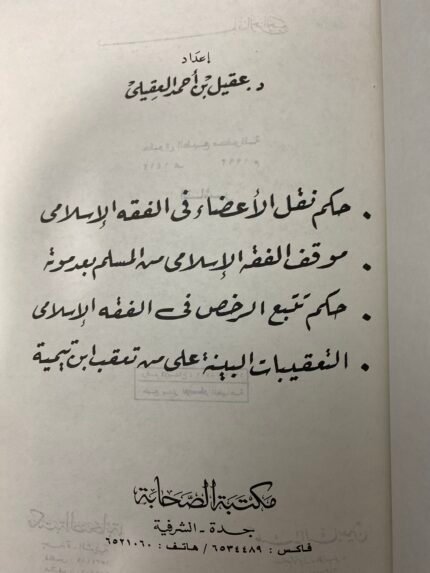 إعداد
د. عقيل بن أحمد العقيلي
• حكم نقل الأعضاء في الفقه الإسلامى
• موقف الفقه الإسلامى من المسلم بعد موته
• حكم تتبع الرخص فى الفقه الإسلامى
• التعقيبات البينة على من تعقب ابن تيمية
مكتبة الصحابة
جدة - الشرفية
فاكس : ٦٥٣٤٤٨٩ / هاتف : ٦٥٢١٠٦٠